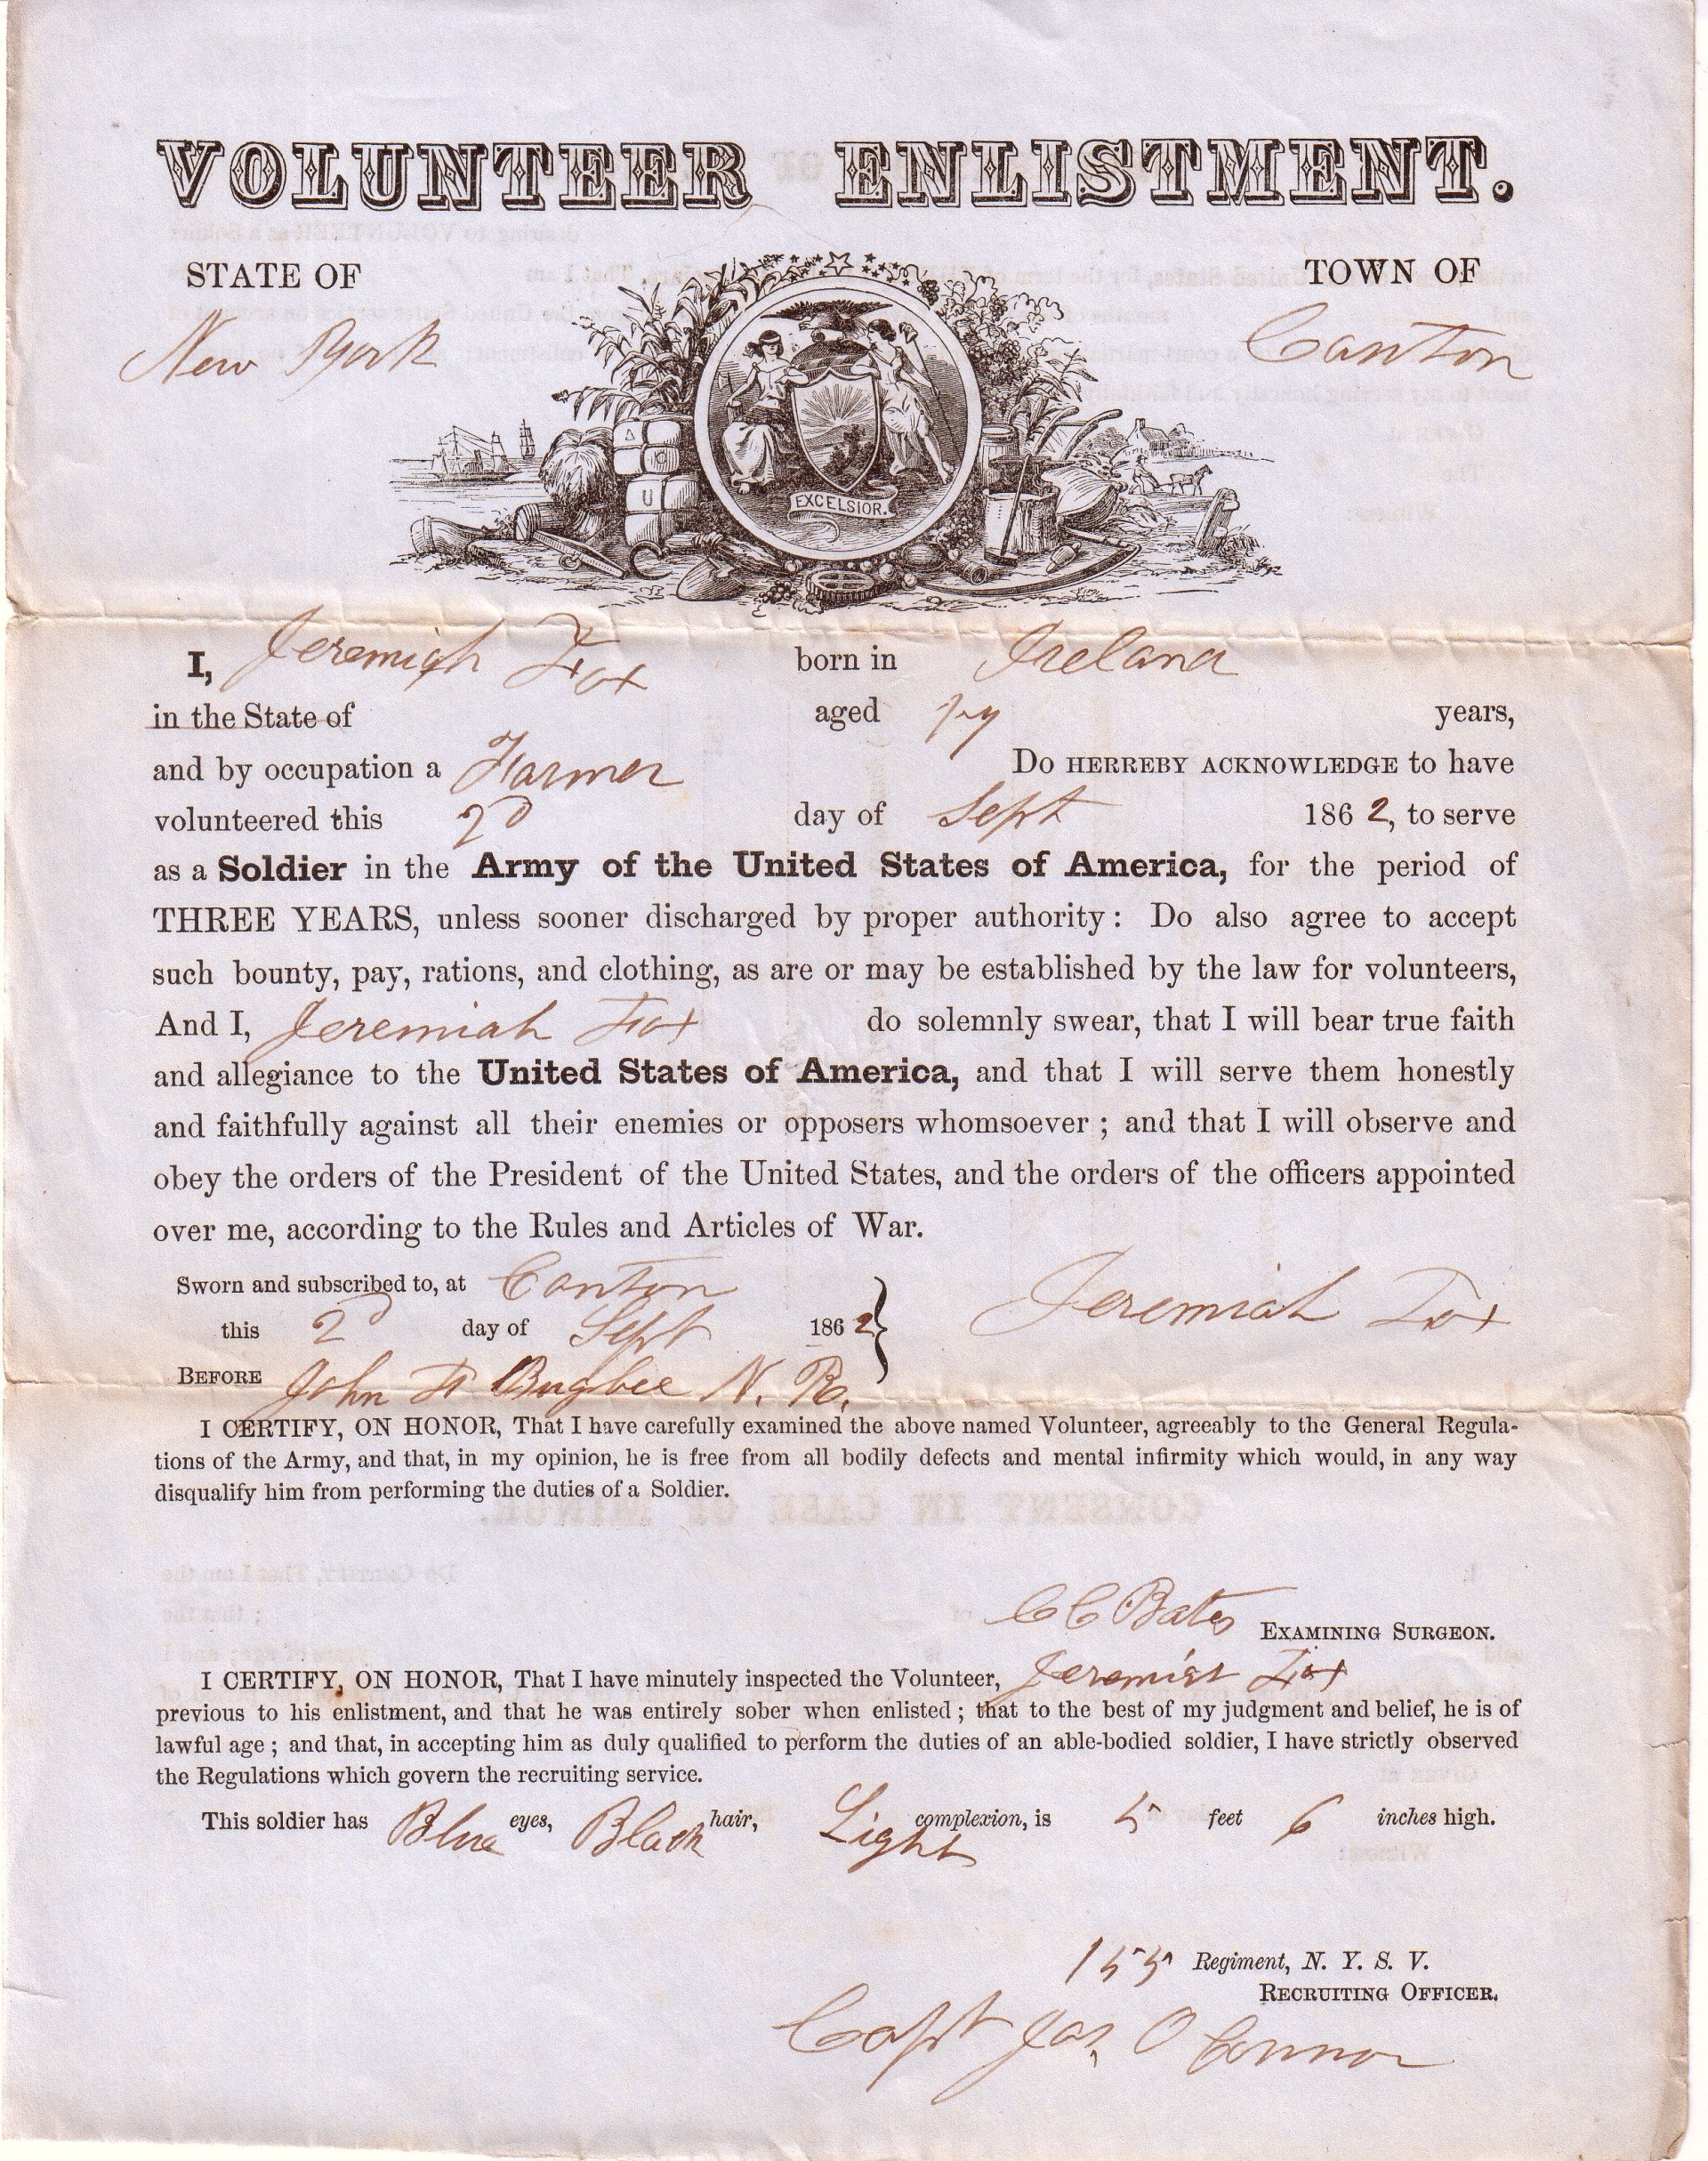 VOLUNTEER ENLISTMENT.
STATE OF
New York
TOWN OF
Canton
EXCELSIOR.
I, Jeremiah Fox born in Ireland
in the State of aged years,
and by occupation a Farmer Do HERREBY ACKNOWLEDGE to have
volunteered this 2d day of Sept 1862, to serve
as a Soldier in the Army of the United States of America, for the period of
THREE YEARS, unless sooner discharged by proper authority: Do also agree to accept
such bounty, pay, rations, and clothing, as are or may be established by the law for volunteers,
And I, Jeremiah Fox do solemnly swear, that I will bear true faith
and allegiance to the United States of America, and that I will serve them honestly
and faithfully against all their enemies or opposers whomsoever; and that I will observe and
obey the orders of the President of the United States, and the orders of the officers appointed
over me, according to the Rules and Articles of War.
Sworn and subscribed to, at Canton
this 2d day of Sept 1862
Jeremiah Fox
BEFORE John Bugbee N. R.
I CERTIFY, ON HONOR, That I have carefully examined the above named Volunteer, agreeably to the General Regula-
tions of the Army, and that, in my opinion, he is free from all bodily defects and mental infirmity which would, in any way
disqualify him from performing the duties of a Soldier.
CONSENT IN CASE OF MINOR.
C C Bates EXAMINING SURGEON.
I CERTIFY, ON HONOR, That I have minutely inspected the Volunteer, Jeremiah Fox
previous to his enlistment, and that he was entirely sober when enlisted; that to the best of my judgment and belief, he is of
lawful age; and that, in accepting him as duly qualified to perform the duties of an able-bodied soldier, I have strictly observed
the Regulations which govern the recruiting service.
This soldier has Blue eyes, Black hair, Light complexion, is 5 feet 6 inches high.
155 Regiment, N. Y. S. V.
RECRUITING OFFICER.
Capt Jas. O Connor